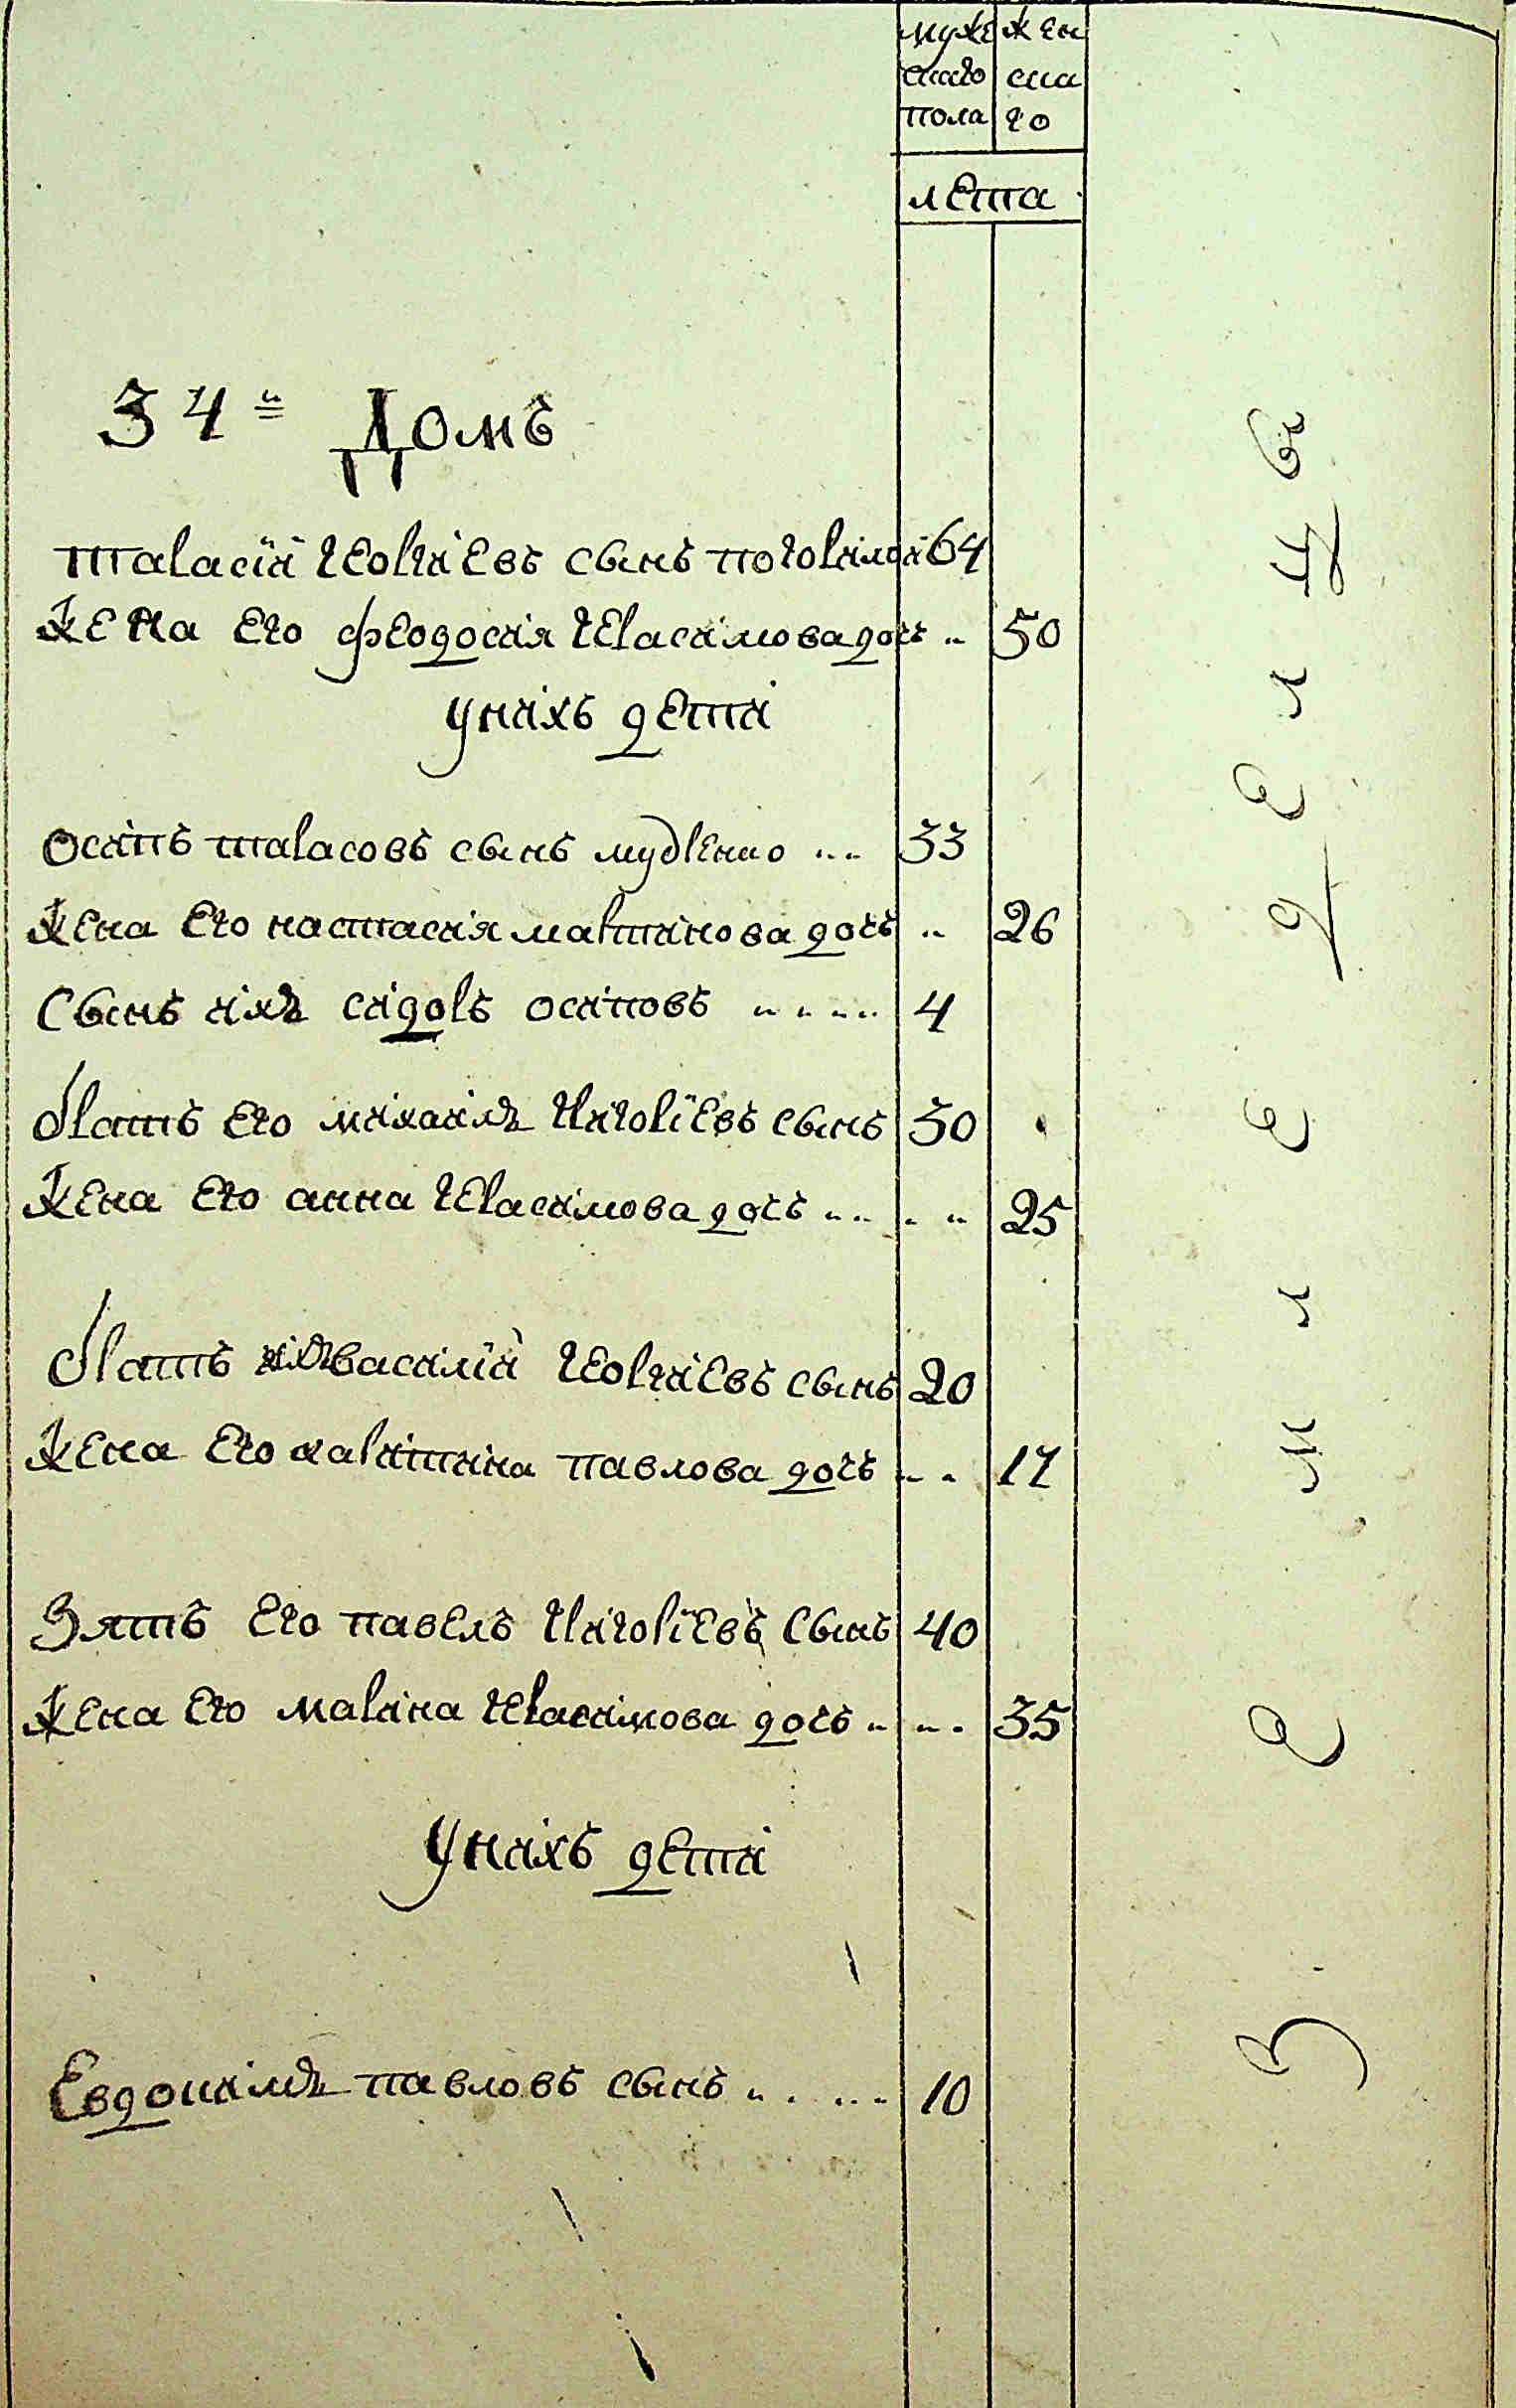 муже жен
скаго ска
пола го
лета
34й Домъ
тарасїй георгіевъ сынъ погорілой 64
жена его феодосія герасімова дочь 50
у ніхъ деті
осіпъ тарасовъ сынъ мудренко 33
жена его настасія мартінова дочь 26
Сынъ іхъ сідоръ осіповъ 4
братъ его міхаілъ грігорїевъ сынъ 30
жена его анна герасімова дочь 25
братъ васілїй георгіевъ сынъ 20
жена его харітіна павлова дочь 17
Зять его павелъ грігорїевъ Сынъ 40
жена его маріна герасімова дочь 35
У ніхъ деті
Евдокімъ павловъ сынъ 10
земледелцы